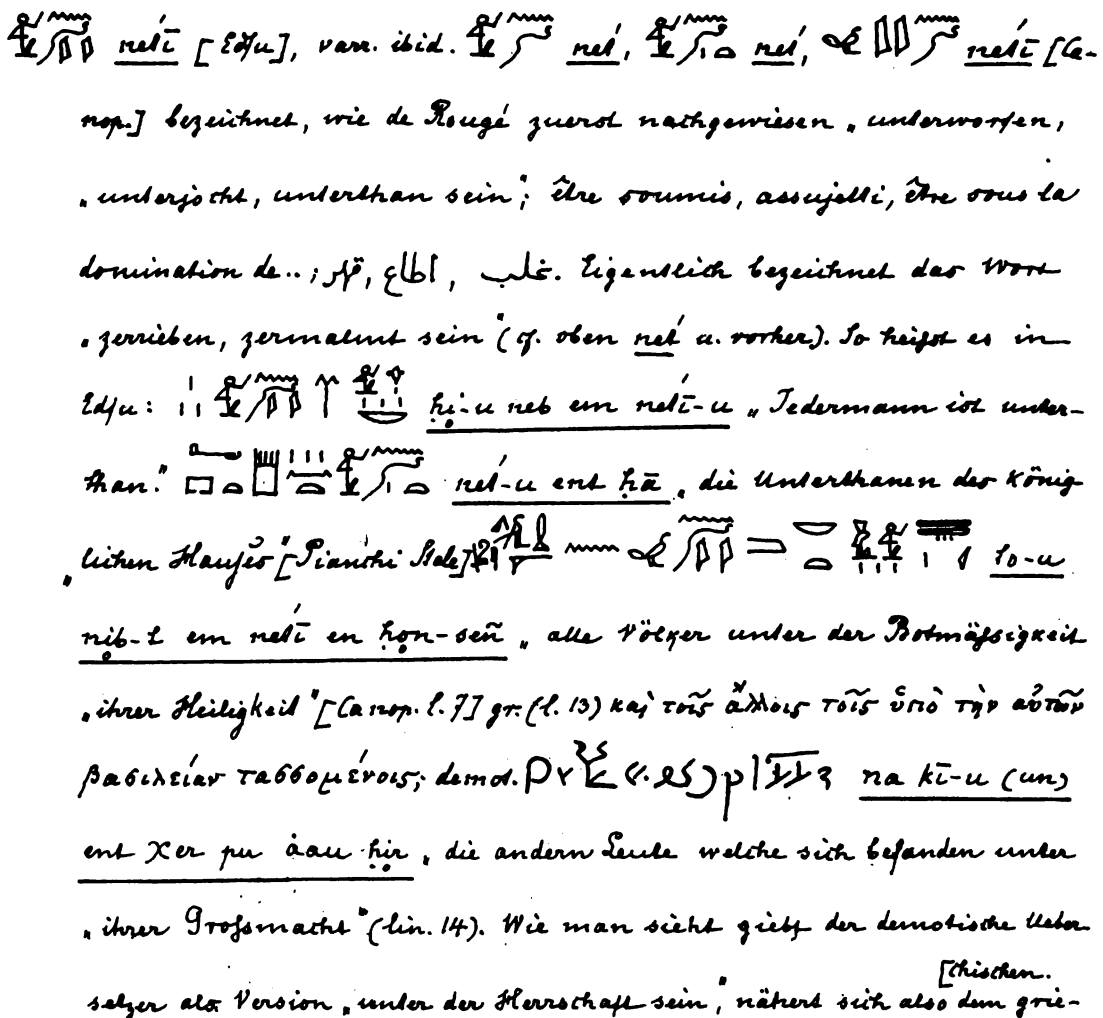 neti̓ [Edfu], varr. ibid. net́, net́, net́ī [Ca-
nop.] bezeichnet, wie de Rougé zuerst nachgewiesen „unterworfen,
„unterjocht, unterthan sein“; être soumis, assujetti, être sous la
domination de..; قهر, اطاع, غلب. Eigentlich bezeichnet das Wort
„zerrieben, zermalmt sein“ (cf. oben net́ u. vorher). So heifst es in
Edfu: ḥi-u neb em net́ī-u „Jedermann ist unter-
than.“ net́-u ent ḥā „die Unterthanen des König
„lichen Hauses“ [Pianchi Stele] to-u
nib-t em net́ī en ḥon-señ „alle Völker unter der Botmäfsigkeit
„ihrer Heiligkeit“ [Canop. l. 7] gr. (l. 13) καὶ τοῖς ἄλλοις τοῖς ὑπὸ τὴν αὐτῶν
βασιλείαν τασσομένοις; demot. na kī-u (un)
ent χer pu àau ḥir „die andern Leute welche sich befanden unter
„ihrer Grofsmacht“ (lin. 14). Wie man sieht giebt der demotische Ueber-
setzer als Version „unter der Herrschaft sein“, nähert sich also dem grie-
[chischen.